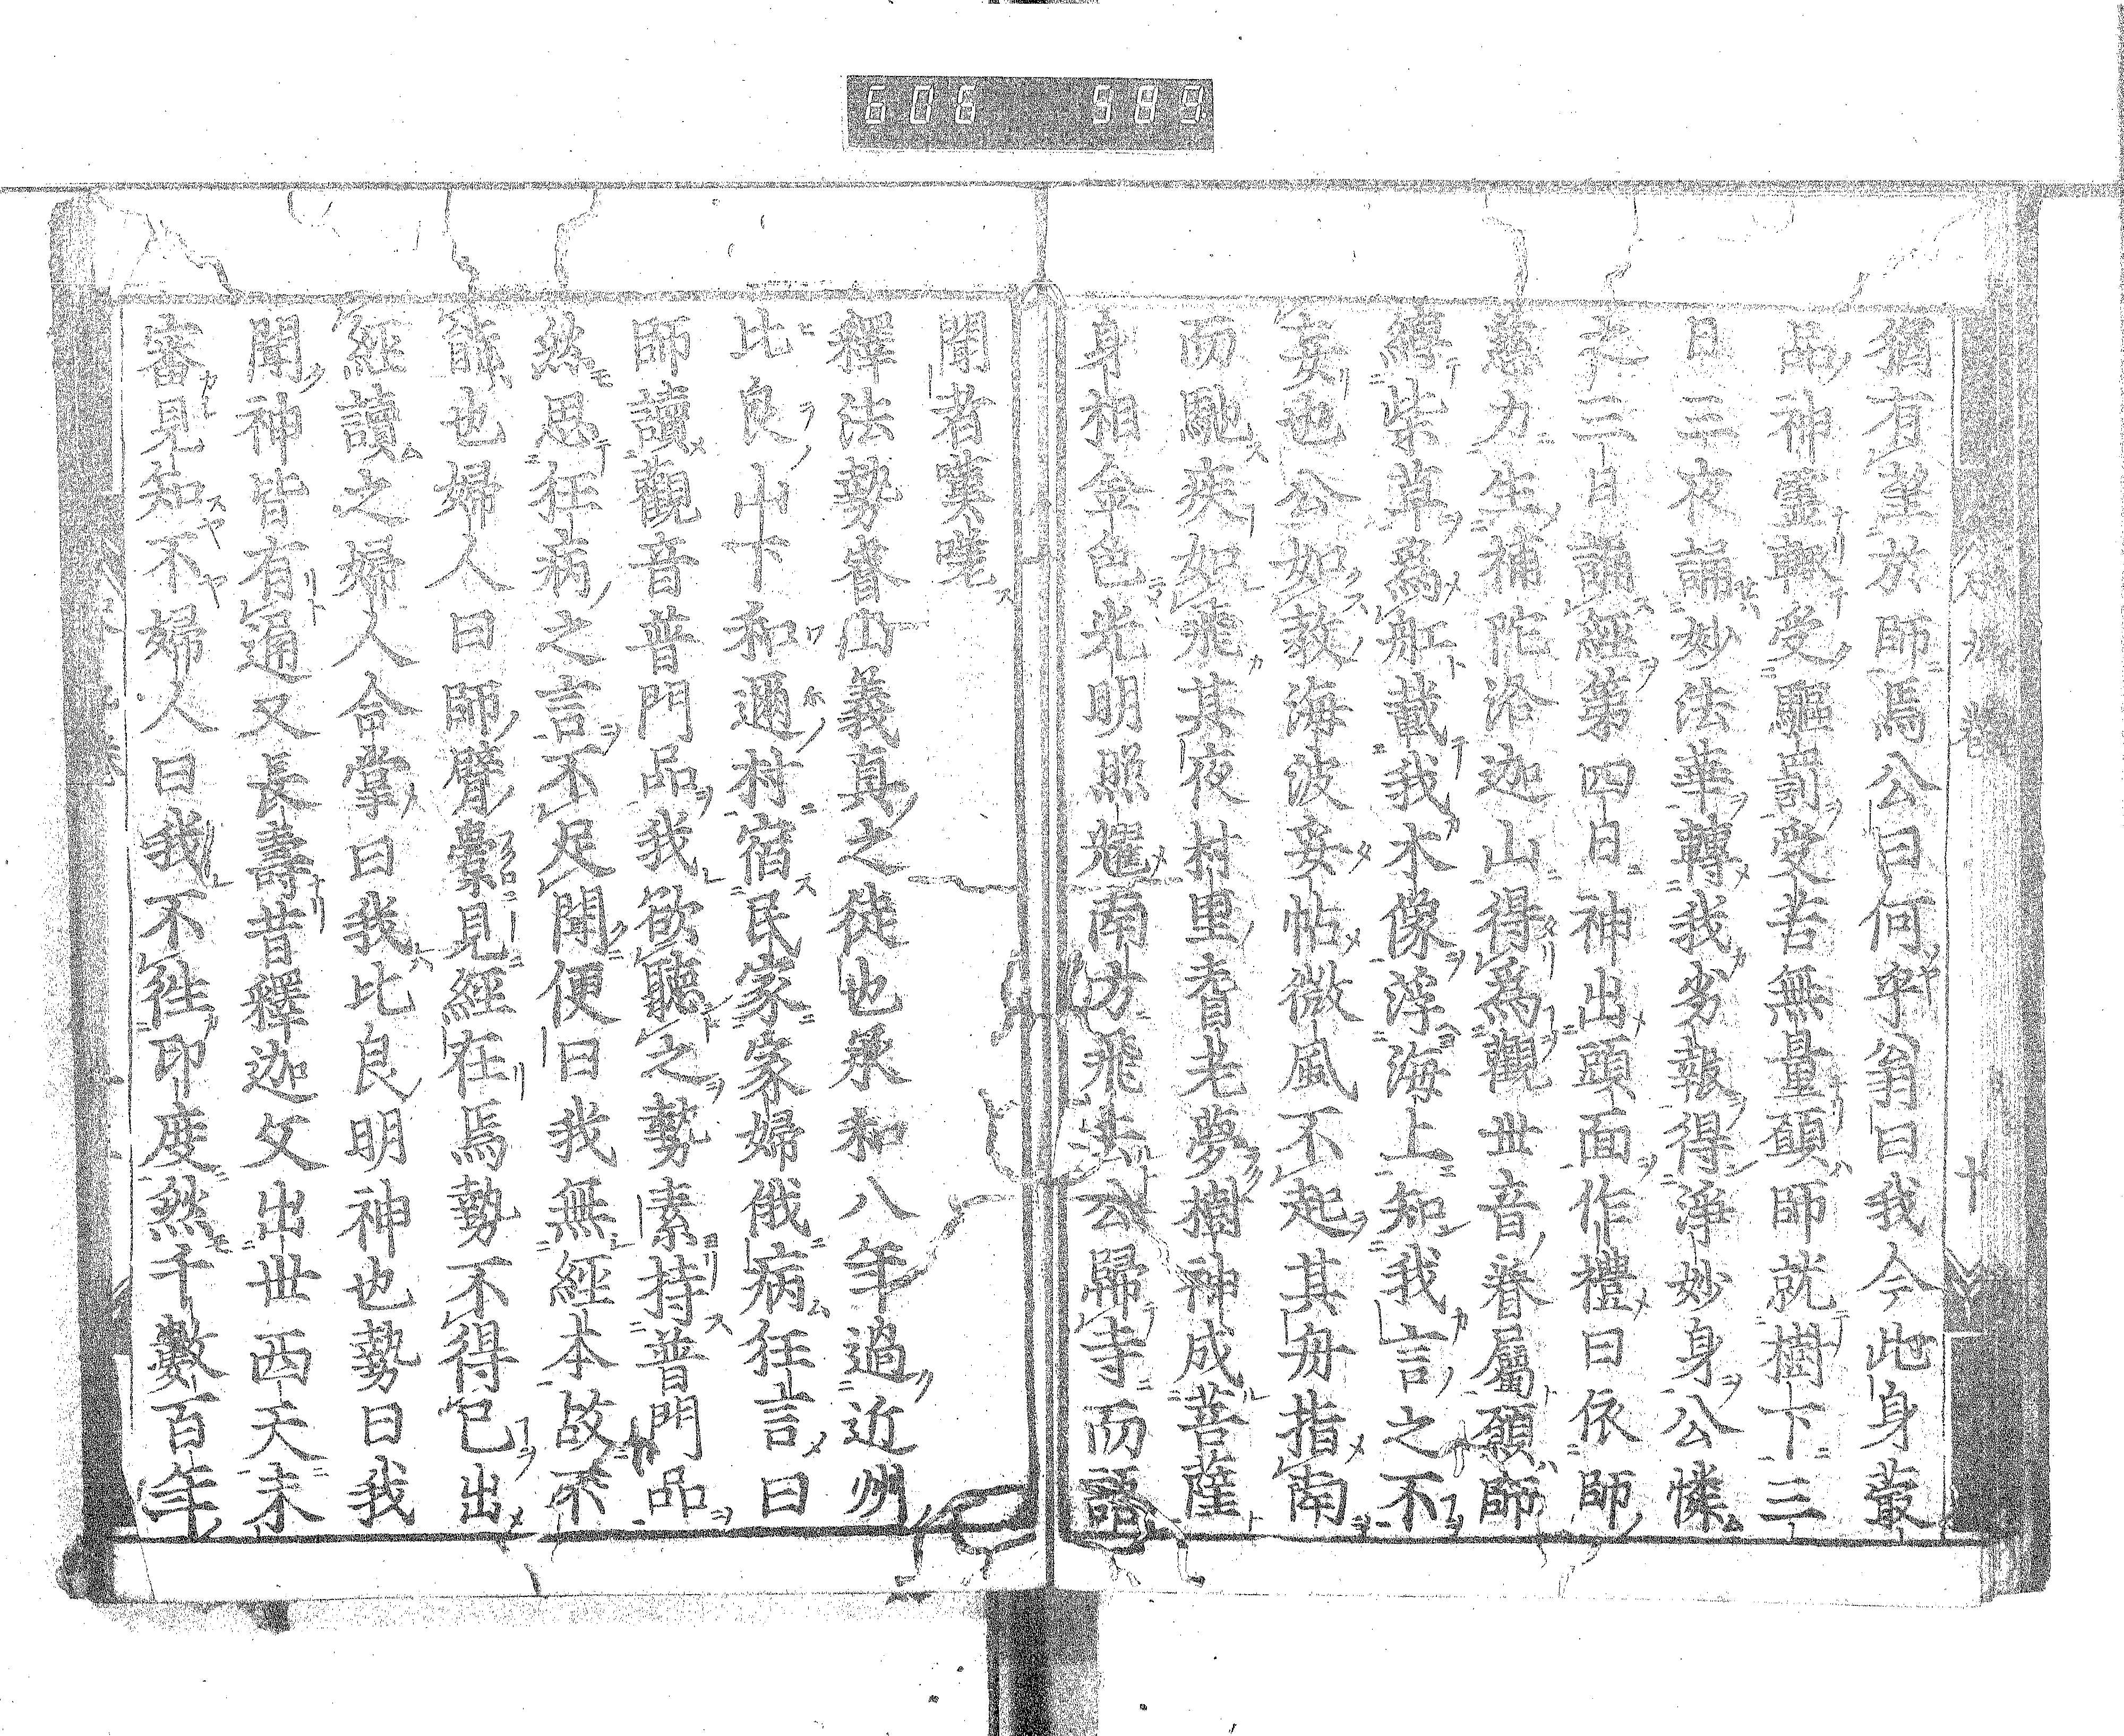 606 589
猶有望於師焉公曰何乎翁曰我今此身叢
品神靈輙受驅罰受苦無量願師就樹下三
日三夜誦妙法華轉我劣報得淨妙身公憐
之三日誦經第四日神出頭面作禮曰依師
慈力生補陀洛迦山得爲觀世音眷屬願師
縛柴草爲舡載我木像浮海上知我言之不
妄也公如教海波妥帖微風不起其舟指南
而馳疾如飛其夜村里耆老夢樹神成菩薩
身相金色光明照耀南方飛去公歸寺而語
聞者嘆嗟
釋法勢睿山義真之徒也承和八年過近州
比良山下和邇村宿民家家婦俄病狂言曰
師讀觀音普門品我欲聽之勢素持普門品
然思狂病之言不足聞便曰我無經本故不
能也婦人曰師臂囊見經在焉勢不得已出
經讀之婦人合掌曰我比良明神也勢曰我
聞神皆有通又長壽昔釋迦文出世西天未
審見知不婦人曰我不徃印度然千數百年
十